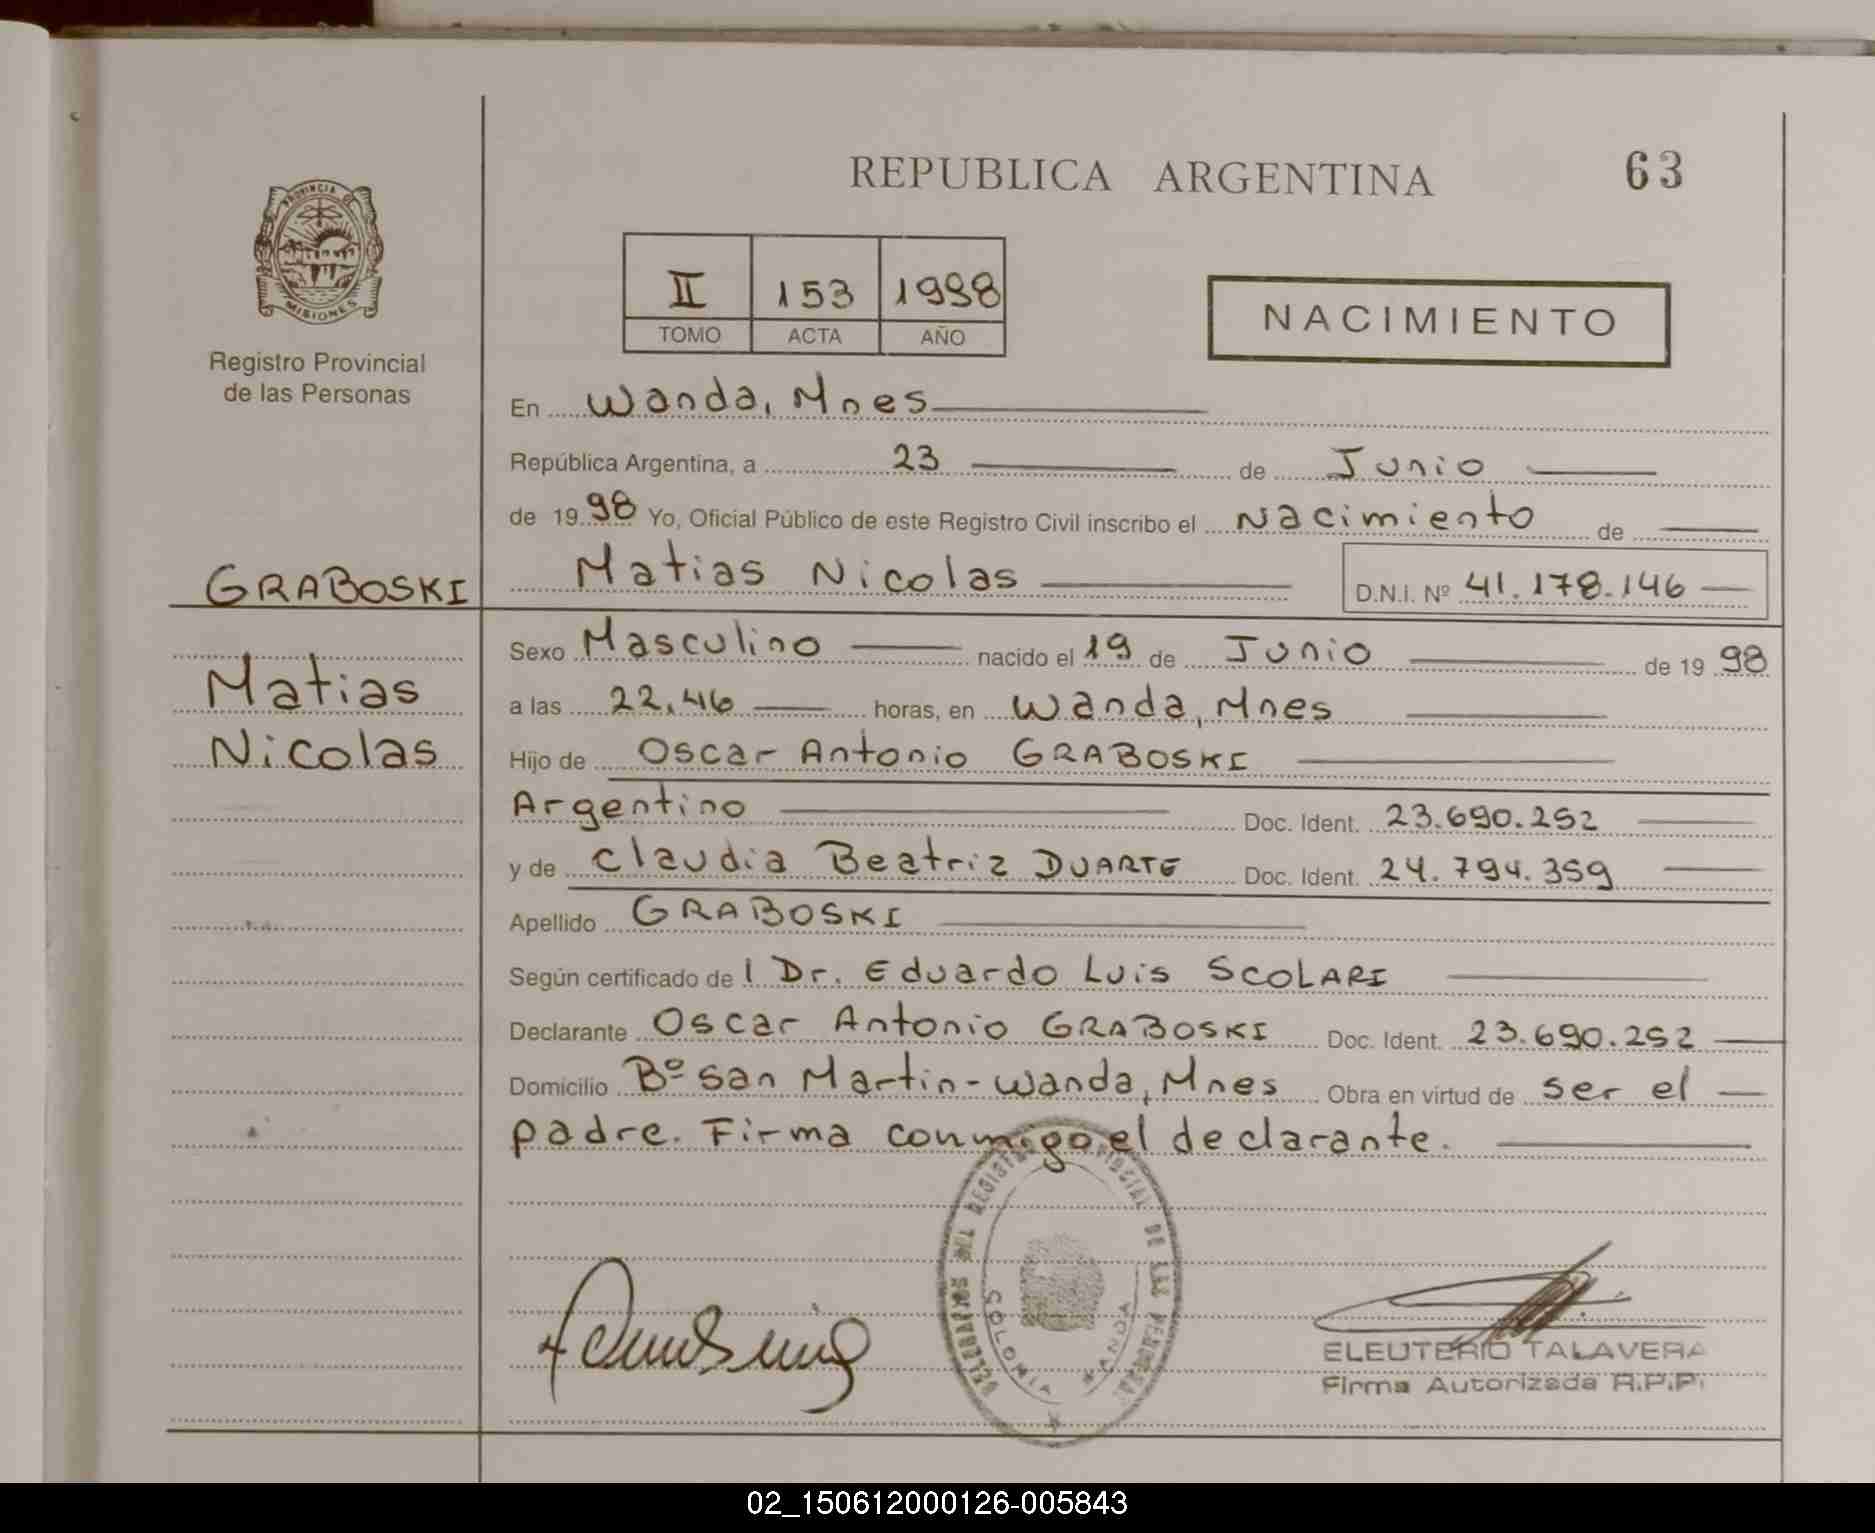 REPUBLICA ARGENTINA
63
PROVINCIA DE
MISIONES
Registro Provincial
de las Personas
II 153 1998
TOMO ACTA AÑO
NACIMIENTO
En Wanda, Mnes
República Argentina, a 23 de Junio
de 1998 Yo, Oficial Público de este Registro Civil inscribo el Nacimiento de
Matias Nicolas D.N.I. Nº 41.178.146
GRABOSKI
Matias
Nicolas
Sexo Masculino nacido el 19 de Junio de 1998
a las 22,46 horas, en Wanda, Mnes
Hijo de Oscar Antonio GRABOSKI
Argentino Doc. Ident. 23.690.252
y de Claudia Beatriz DUARTE Doc. Ident. 24.794.359
Apellido GRABOSKI
Según certificado de l Dr. Eduardo Luis SCOLARI
Declarante Oscar Antonio GRABOSKI Doc. Ident. 23.690.252
Domicilio Bº San Martin - Wanda, Mnes Obra en virtud de ser el
padre. Firma conmigo el declarante.
COLONIA WANDA
ELEUTERIO TALAVERA
Firma Autorizada R.P.P.
02_150612000126-005843